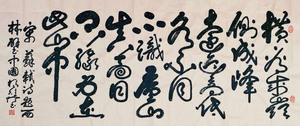 橫看成嶺
側成峰
遠近高低
各不同
不識廬山
真面目
只緣身在
此山中
宋蘇軾詩題西
林壁